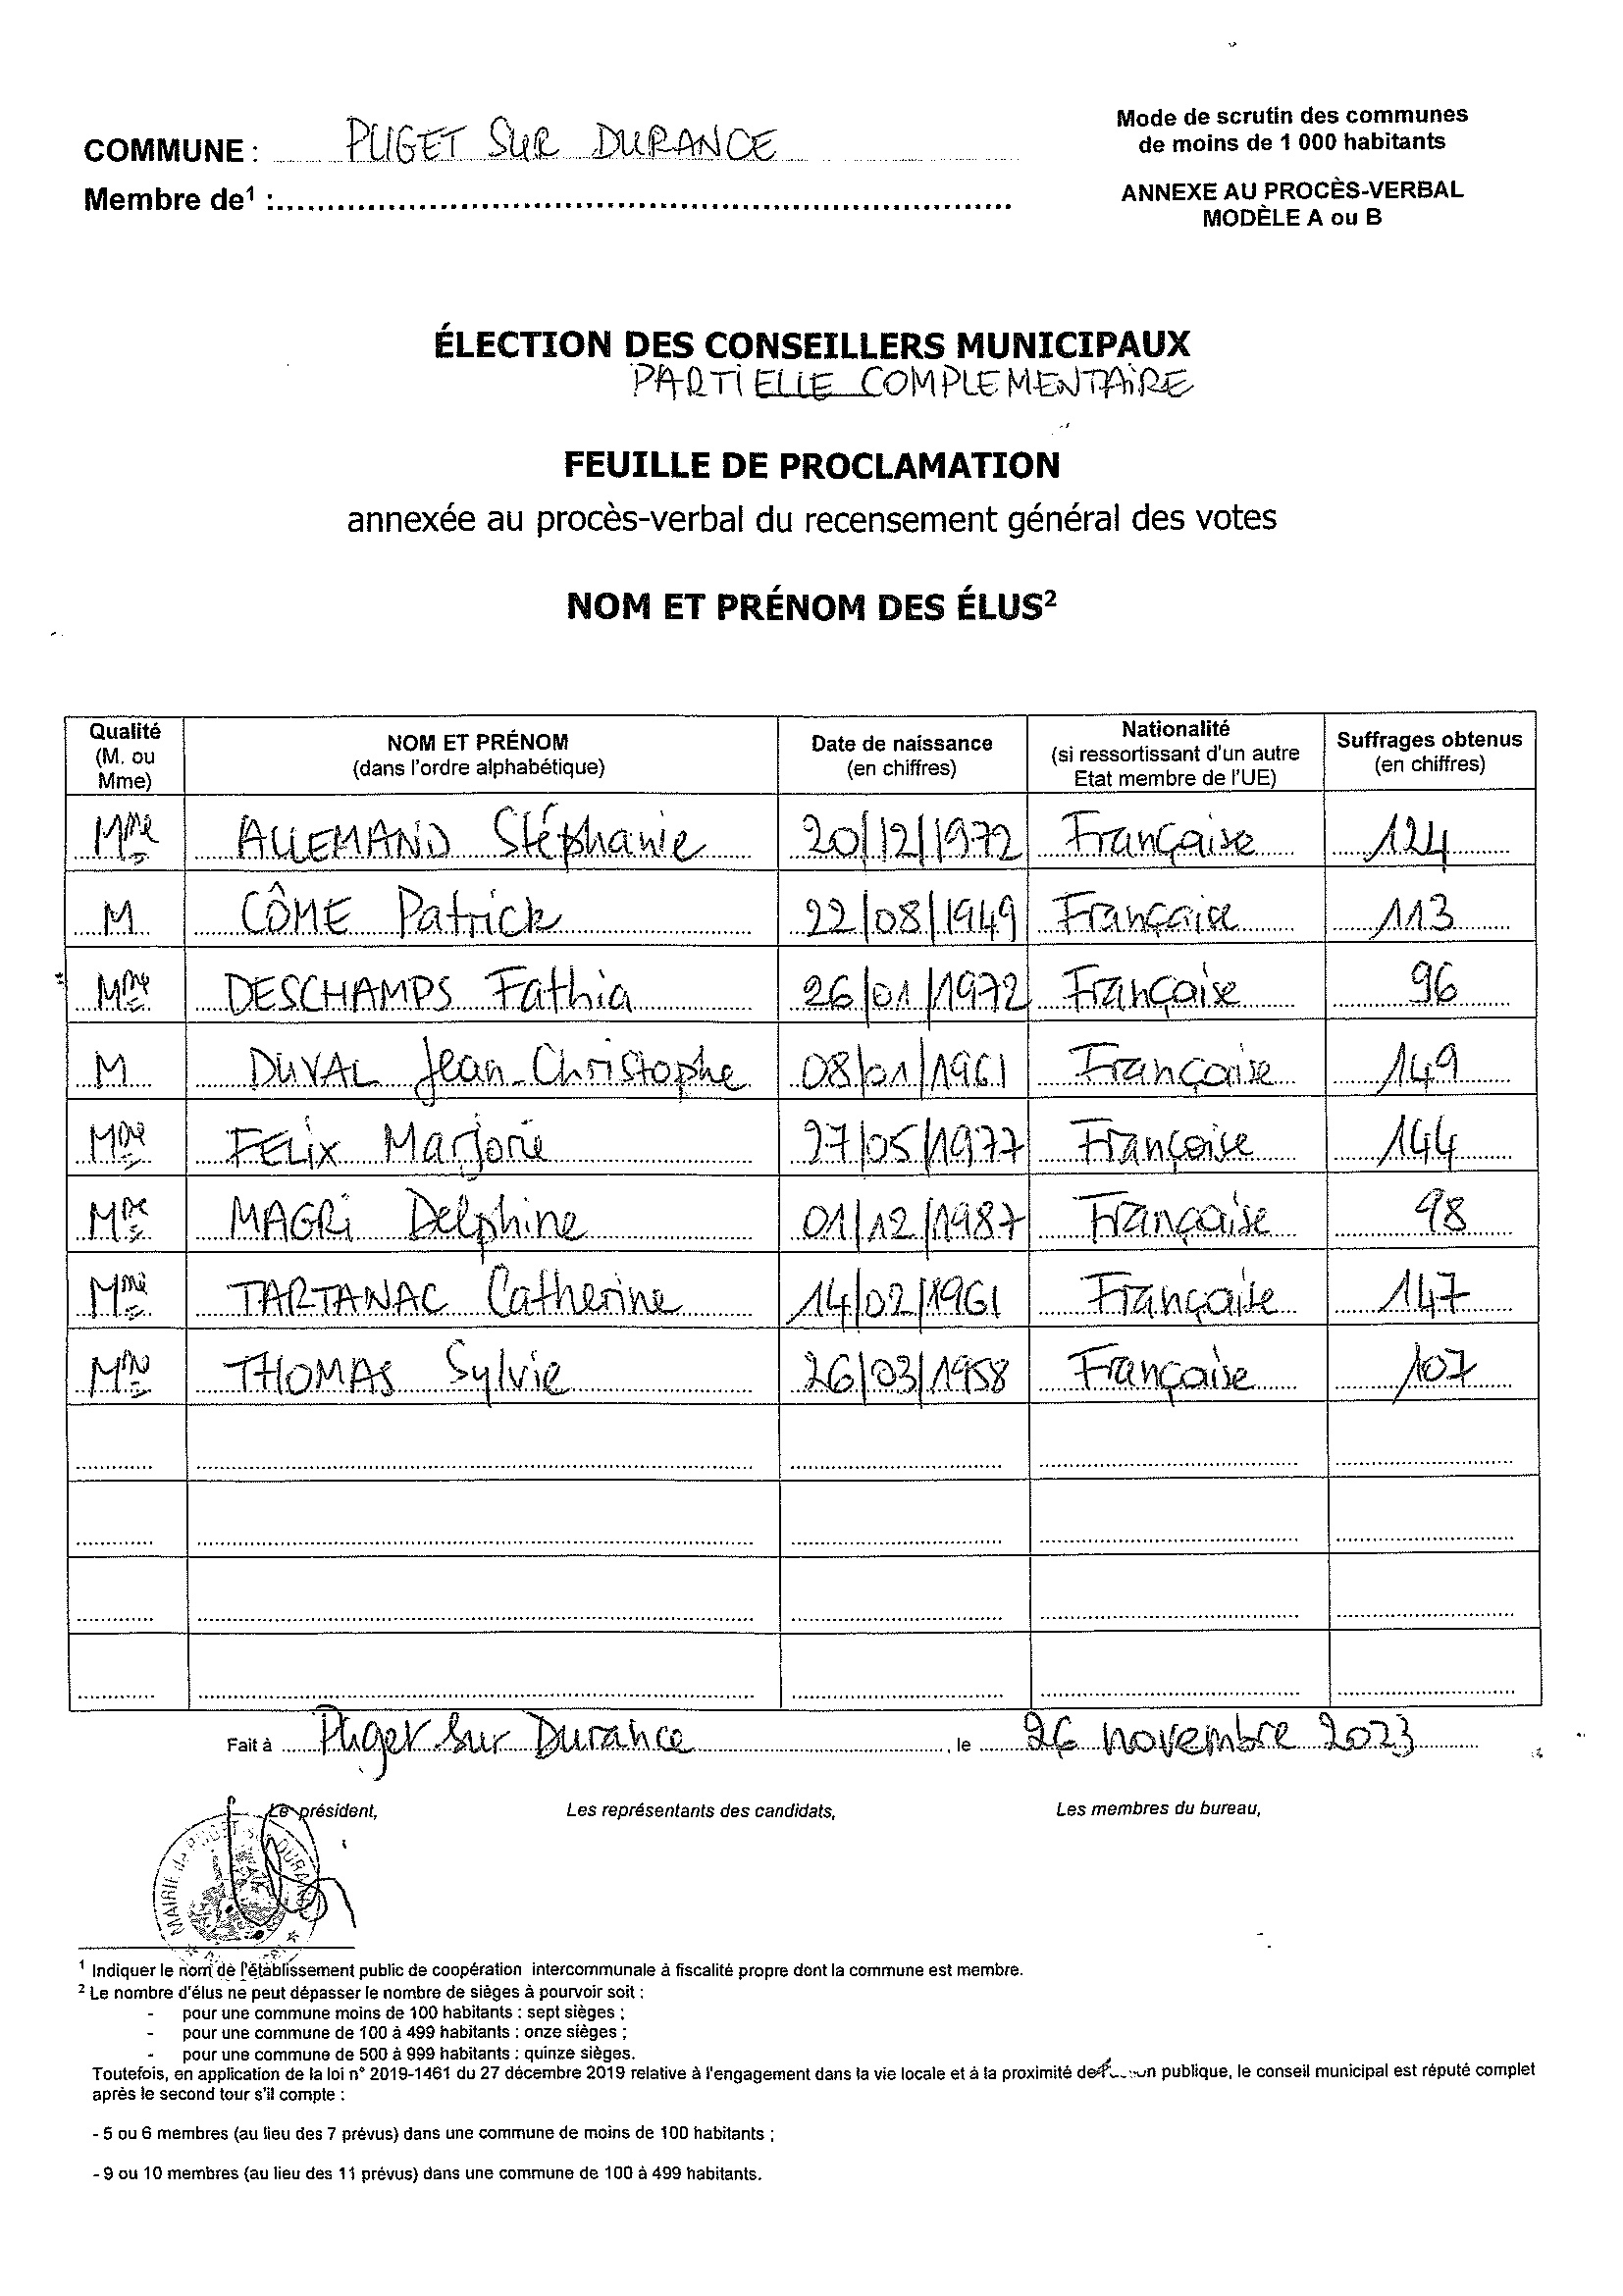 COMMUNE : PUGET SUR DURANCE
Mode de scrutin des communes
de moins de 1 000 habitants
Membre de¹ :
ANNEXE AU PROCÈS-VERBAL
MODÈLE A ou B
ÉLECTION DES CONSEILLERS MUNICIPAUX
PARTIELLE COMPLEMENTAIRE
FEUILLE DE PROCLAMATION
annexée au procès-verbal du recensement général des votes
NOM ET PRÉNOM DES ÉLUS²
Qualité (M. ou Mme) NOM ET PRÉNOM (dans l'ordre alphabétique) Date de naissance (en chiffres) Nationalité (si ressortissant d'un autre Etat membre de l'UE) Suffrages obtenus (en chiffres)
Mme ALLEMAND Stéphanie 20/12/1972 Française 124
M CÔME Patrick 22/08/1949 Française 113
Mme DESCHAMPS Fathia 26/01/1972 Française 96
M DUVAL Jean-Christophe 08/01/1961 Française 149
Mme FELIX Marjorie 27/05/1977 Française 144
Mme MAGRI Delphine 01/12/1987 Française 98
Mme TARTANAC Catherine 14/02/1961 Française 147
Mme THOMAS Sylvie 26/03/1958 Française 107
Fait à Puget sur Durance, le 26 novembre 2023
Le président, Les représentants des candidats, Les membres du bureau,
MAIRIE de PUGET sur DURANCE
¹ Indiquer le nom de l'établissement public de coopération intercommunale à fiscalité propre dont la commune est membre.
² Le nombre d'élus ne peut dépasser le nombre de sièges à pourvoir soit :
- pour une commune moins de 100 habitants : sept sièges ;
- pour une commune de 100 à 499 habitants : onze sièges ;
- pour une commune de 500 à 999 habitants : quinze sièges.
Toutefois, en application de la loi n° 2019-1461 du 27 décembre 2019 relative à l'engagement dans la vie locale et à la proximité de publique, le conseil municipal est réputé complet
après le second tour s'il compte :
- 5 ou 6 membres (au lieu des 7 prévus) dans une commune de moins de 100 habitants ;
- 9 ou 10 membres (au lieu des 11 prévus) dans une commune de 100 à 499 habitants.